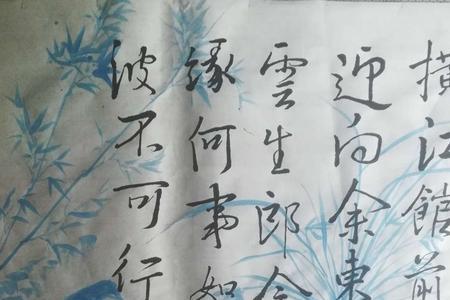 横江館前
迎向余東
雲生郎今
緣何事如
波不可行